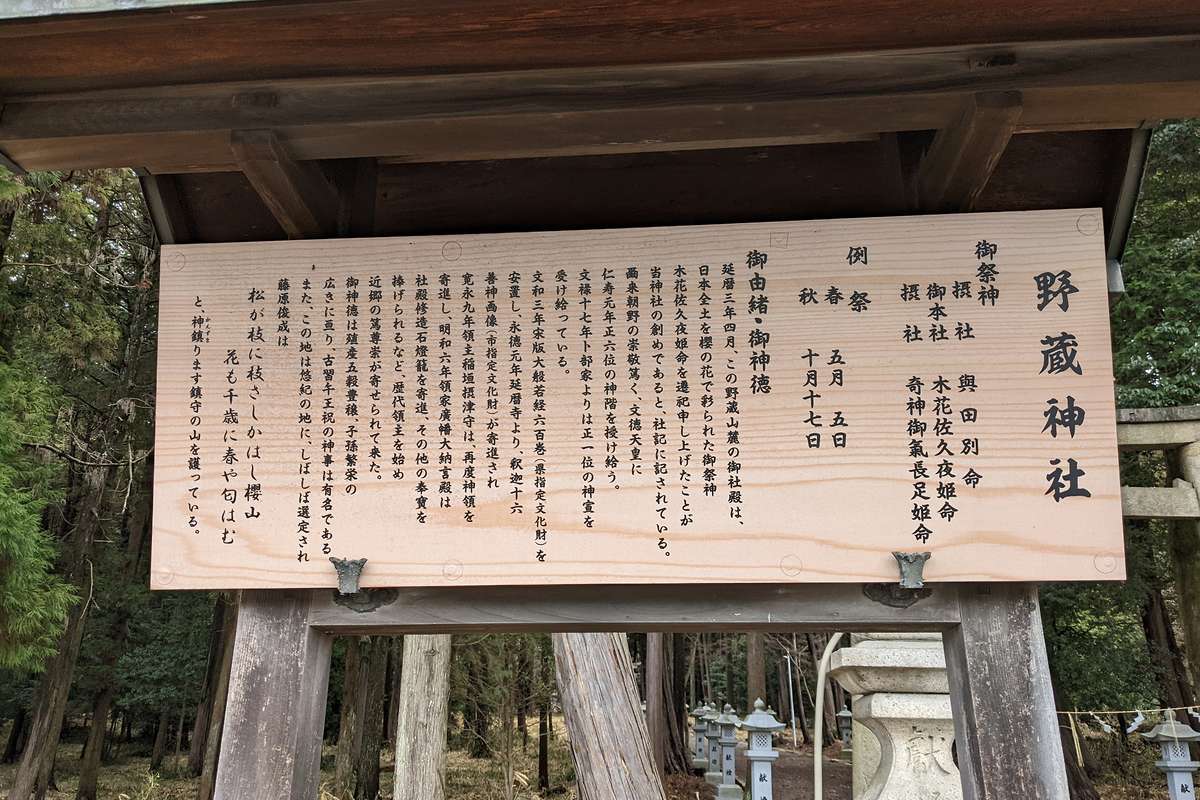 野蔵神社
御祭神
摂社 與田別命
御本社 木花佐久夜姫命
摂社 奇神御氣長足姫命
例祭
春 五月 五日
秋 十月十七日
御由緒・御神徳
延暦三年四月、この野蔵山麓の御社殿は、
日本全土を櫻の花で彩られた御祭神
木花佐久夜姫命を遷祀申し上げたことが
当神社の創めであると、社記に記されている。
爾来朝野の崇敬篤く、文徳天皇に
仁寿元年正六位の神階を授け給う。
文禄十七年卜部家よりは正一位の神宣を
受け給っている。
文和三年宋版大般若経六百巻(県指定文化財)を
安置し、永徳元年延暦寺より、釈迦十六
善神画像(市指定文化財)が寄進され
寛永九年領主稲垣摂津守は、再度神領を
寄進し、明和六年領家廣幡大納言殿は
社殿修造石燈籠を寄進、その他の奉寳を
捧げられるなど、歴代領主を始め
近郷の篤尊崇が寄せられて来た。
御神徳は殖産五穀豊穣、子孫繁栄の
広きに亘り、古習千王祝の神事は有名である
また、この地は悠紀の地に、しばしば選定され
藤原俊成は
松が枝に枝さしかはし櫻山
花も千歳に春や匂はむ
と、神鎮ります鎮守の山を護っている。
かんしず
献
献
献